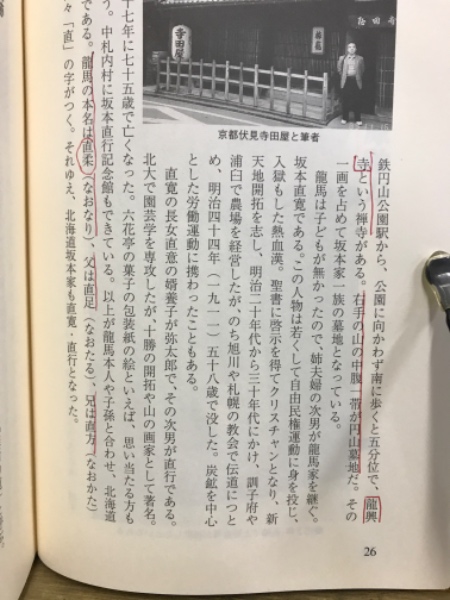 寺田屋
京都伏見寺田屋と筆者
鉄円山公園駅から、公園に向かわず南に歩くと五分位で、龍興
寺という禅寺がある。右手の山の中腹一帯が円山墓地だ。その
一画を占めて坂本家一族の墓地となっている。
龍馬は子どもが無かったので、姉夫婦の次男が龍馬家を継ぐ。
坂本直寛である。この人物は若くして自由民権運動に身を投じ、
入獄もした熱血漢。聖書に啓示を得てクリスチャンとなり、新
天地開拓を志し、明治二十年代から三十年代にかけ、訓子府や
浦臼で農場を経営したが、のち旭川や札幌の教会で伝道につと
め、明治四十四年（一九一一）五十八歳で没した。炭鉱を中心
とした労働運動に携わったこともある。
直寛の長女直意の婿養子が弥太郎で、その次男が直行である。
北大で園芸学を専攻したが、十勝の開拓や山の画家として著名。
十七年に七十五歳で亡くなった。六花亭の菓子の包装紙の絵といえば、思い当たる方も
う。中札内村に坂本直行記念館もできている。以上が龍馬本人や子孫と合わせ、北海道
である。龍馬の本名は直柔（なおなり）、父は直足（なおたる）、兄は直方（なおかた）
々「直」の字がつく。それゆえ、北海道坂本家も直寛・直行となった。
26